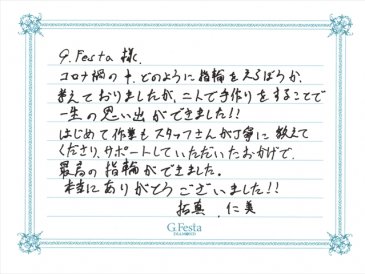 G.Festa 様.
コロナ禍の中、どのように指輪をえらぼうか、
考えておりましたが、二人で手作りをすることで
一生の思い出ができました!!
はじめて作業もスタッフさんが丁寧に教えて
くださり、サポートしていただいたおかげで、
最高の指輪ができました。
本当にありがとうございました!!
拓真 仁美
G.Festa
DIAMOND